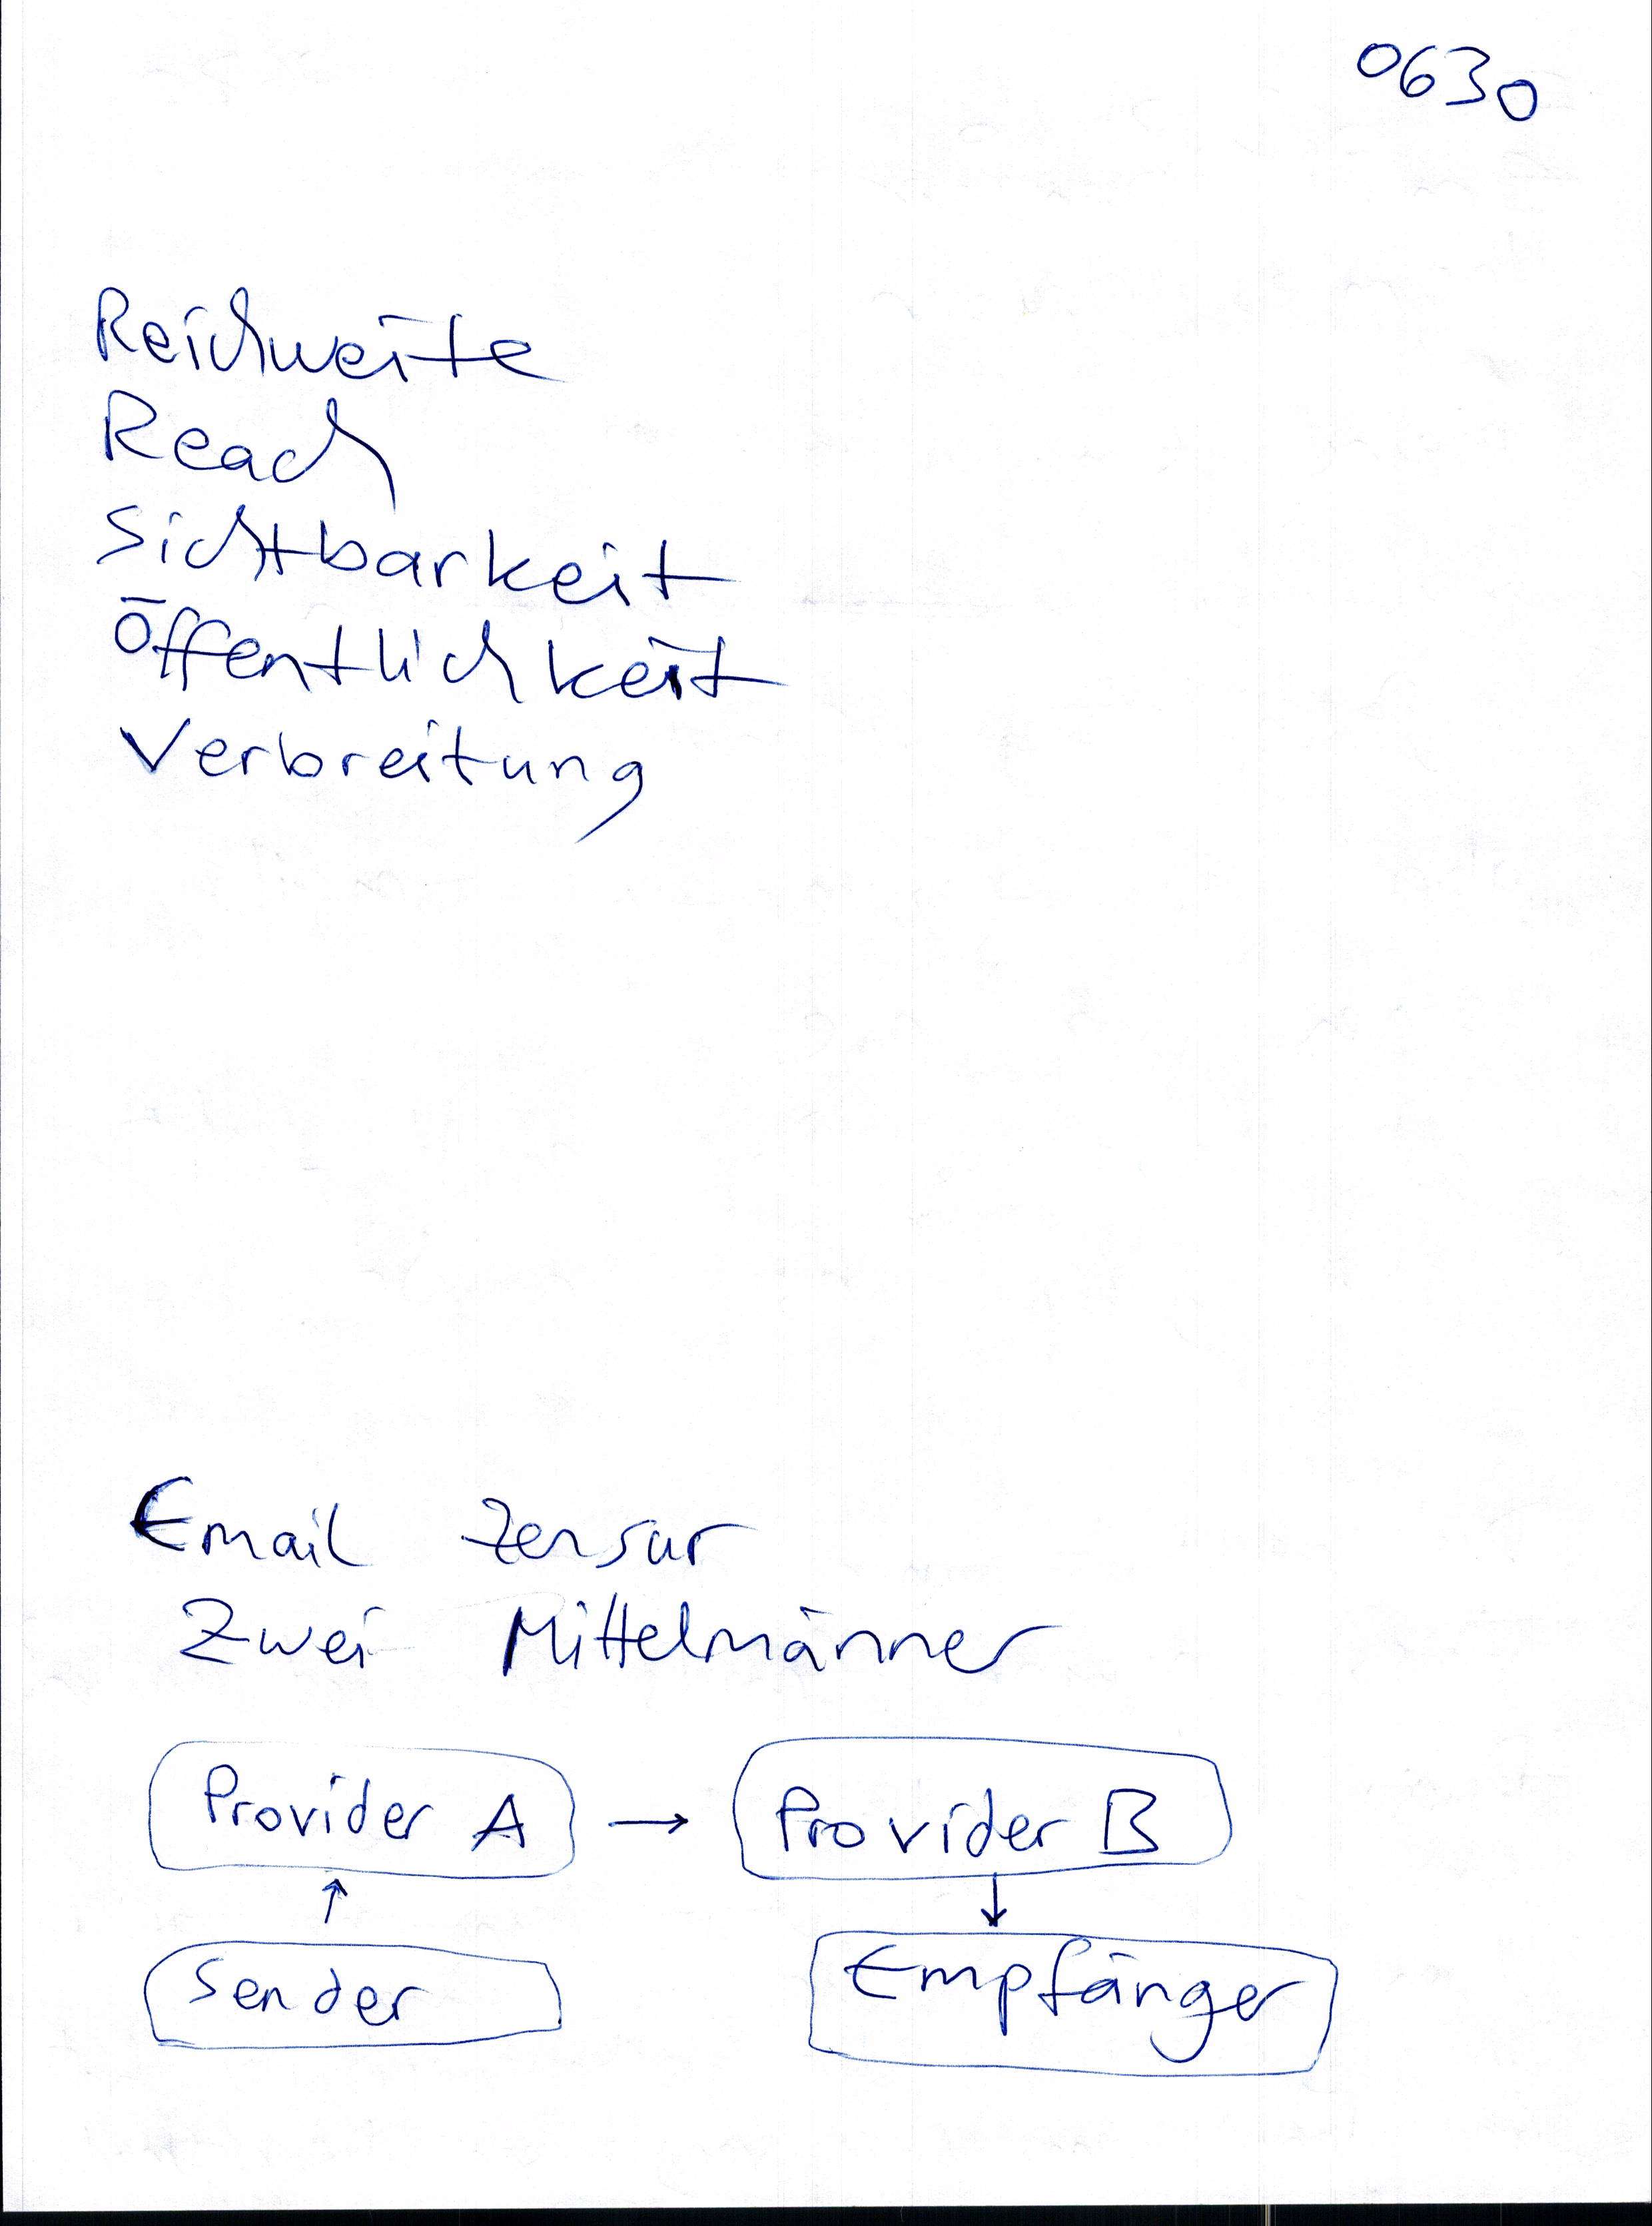 0630
Reichweite
Reach
Sichtbarkeit
Öffentlichkeit
Verbreitung
Email Zensur
Zwei Mittelmänner
Provider A → Provider B
↑ ↓
Sender Empfänger